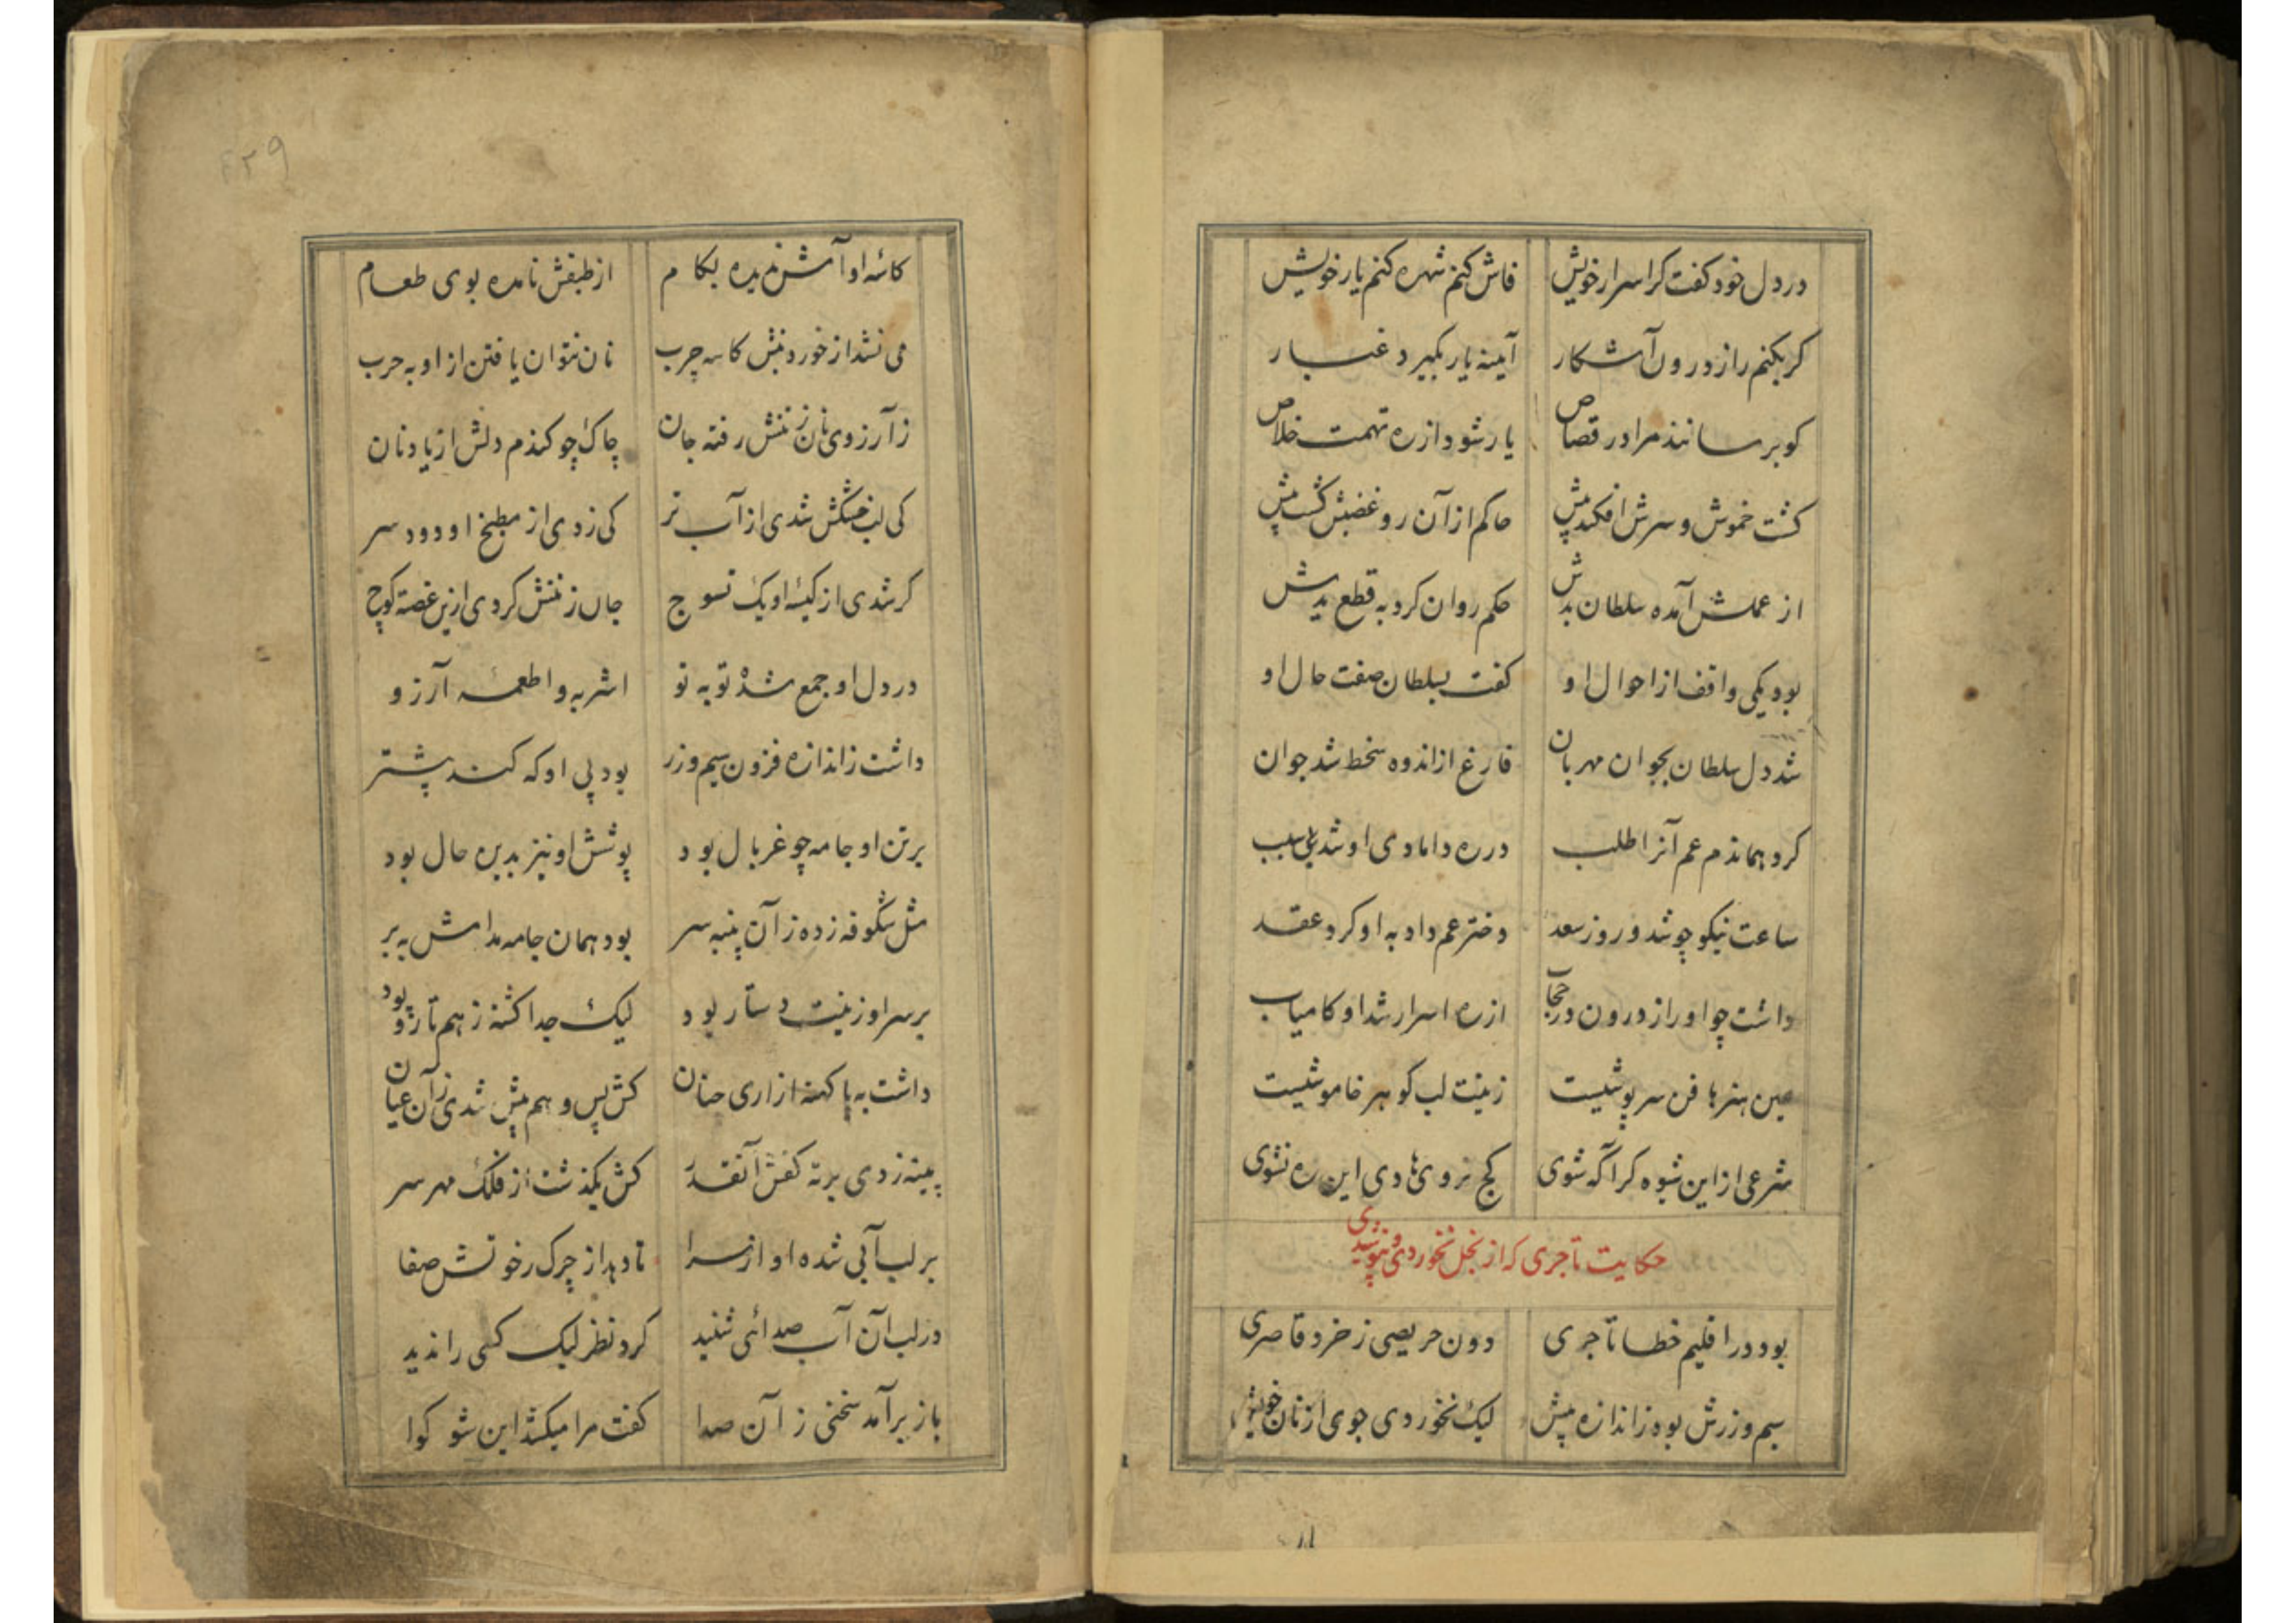 در دل خود گفت کر اسرار خویش فاش کنم شهره کنم یار خویش
کر بکنم راز درون آشکار آینه یار بگیرد غبار
کو برسانند مرا در قصاص یار شود از ره تهمت خلاص
کشت خموش و سرش افکند پیش حاکم از آن رو غضبش کشت پیش
از عملش آمده سلطان بدش حکم روان کرد به قطع یدش
بود یکی واقف از احوال او کفت بسلطان صفت حال او
شد دل سلطان بجوان مهربان فارغ از اندوه سخط شد جوان
کرد هماندم عم آنرا طلب در ره دامادی او شد سبب
ساعت نیکو چو شد و روز سعد دختر عم داد به او کرد عقد
داشت چو او راز درون در حجاب از ره اسرار شد او کامیاب
عین هنرها فن سرپوشیست زینت لب کوهر خاموشیست
شرعی از این شیوه کر آگه شوی کج نروی هادی این ره شوی
حکایت تاجری که از بخل نخوردی و نپوشیدی
بود در اقلیم خطا تاجری دون حریصی ز خرد قاصری
سیم و زرش بوه ز اندازه پیش لیک نخوردی جوی از نان خویش
۴۲۹
کاسه او آش ندیده بکام از طبقش نامده بوی طعام
می نشد از خوردنیش کاسه چرب نان نتوان یافتن از او به حرب
ز آرزوی نان ز تنش رفته جان چاک چو کندم دلش از یاد نان
کی لب خشکش شدی از آب تر کی زدی از مطبخ او دود سر
کر شدی از کیسه او یک تسوج جان ز تنش کردی ازین غصه کوچ
در دل او جمع شده تو به تو اشربه و اطعمه آرزو
داشت ز اندازه فزون سیم و زر بود پی او که کند بیشتر
بر تن او جامه چو غربال بود پوشش او نیز بدین حال بود
مثل شکوفه زده ز آن پنبه سر بود همان جامه مدامش به بر
بر سر او زینت دستار بود لیک جدا کشته ز هم تار و پود
داشت به پا کهنه ازاری چنان کش پس و هم پیش شدی ز آن عیان
پینه زدی بر ته کفش آنقدر کش بگذشت از فلک مهر سر
بر لب آبی شده او از سرا تا دهد از چرک رخوتش صفا
در لب آن آب صدائی شنید کرد نظر لیک کسی را ندید
باز برآمد سخنی ز آن صدا کفت مرا میکشد این شو کوا